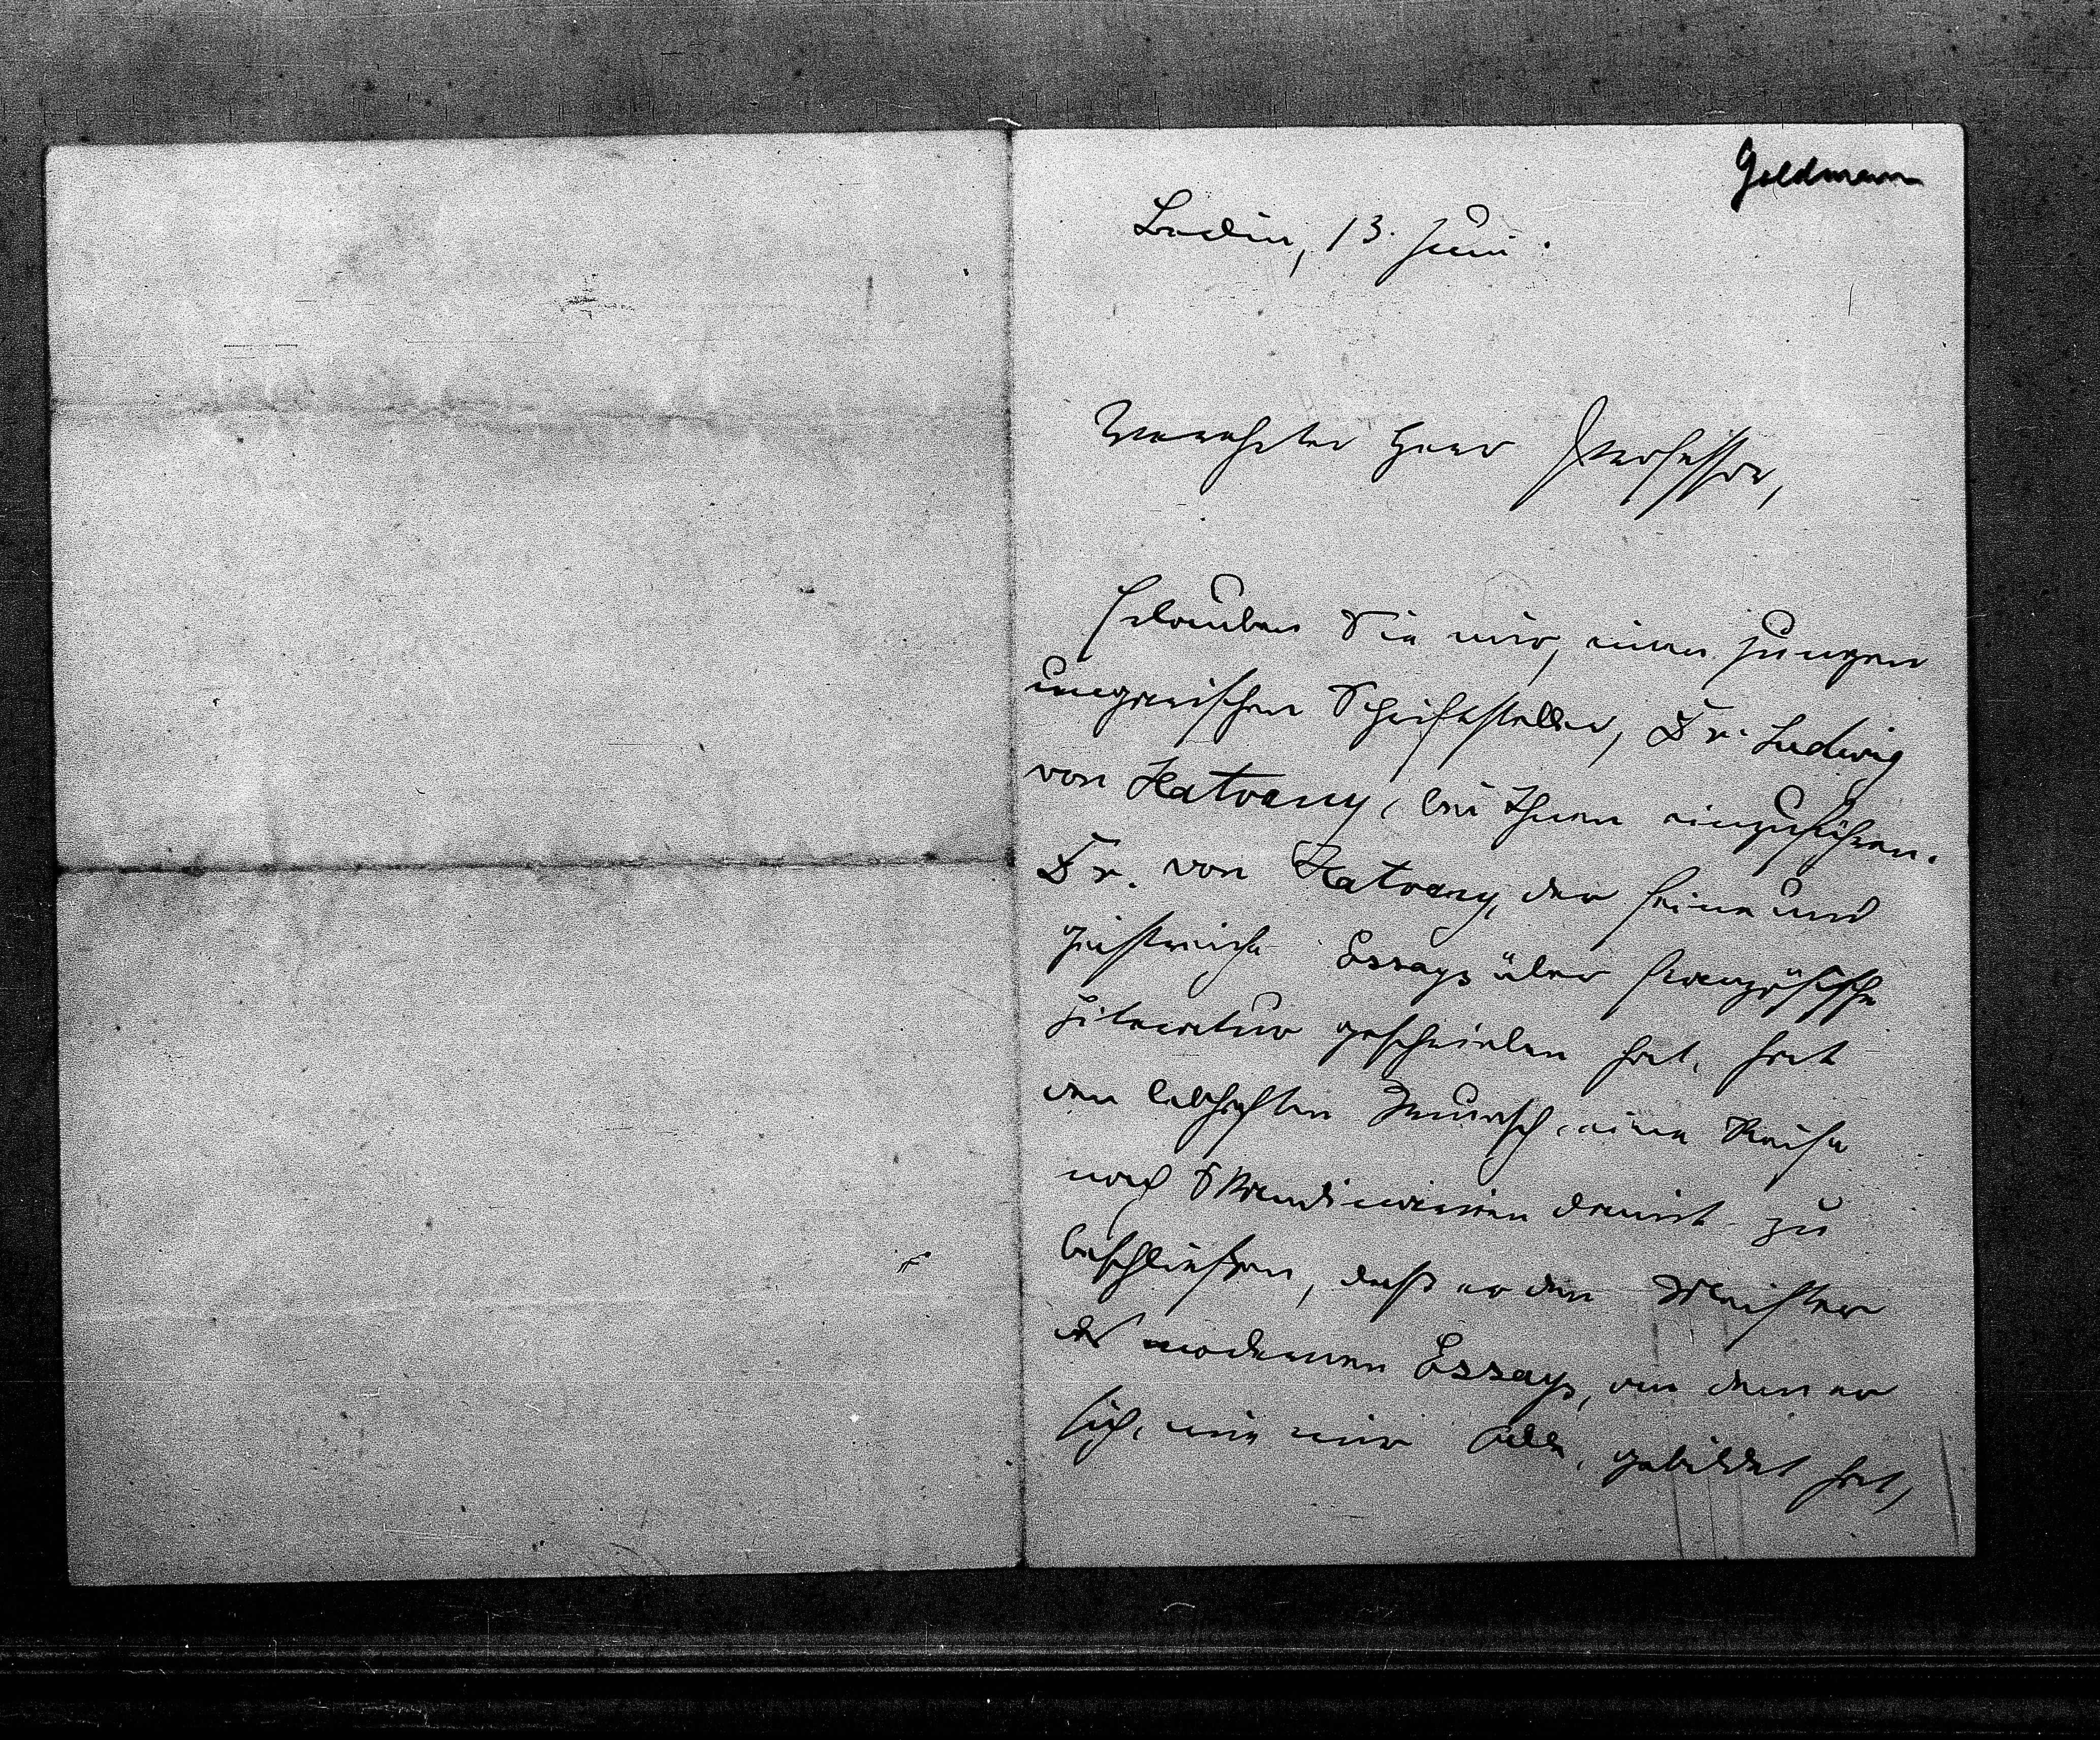 Goldmann
Berlin, 13. Juni.
Verehrter Herr Professor,
Erlauben Sie mir, einen jungen
ungarischen Schriftsteller, Dr. Ludwig
von Hatvany, bei Ihnen einzuführen.
Dr. von Hatvany, der feine und
geistreiche Essays über französische
Literatur geschrieben hat, hat
den lebhaften Wunsch, eine Reise
nach Skandinavien damit zu
beschließen, daß er den Meister
des modernen Essays, an dem er
sich, wie wir Alle, gebildet hat,